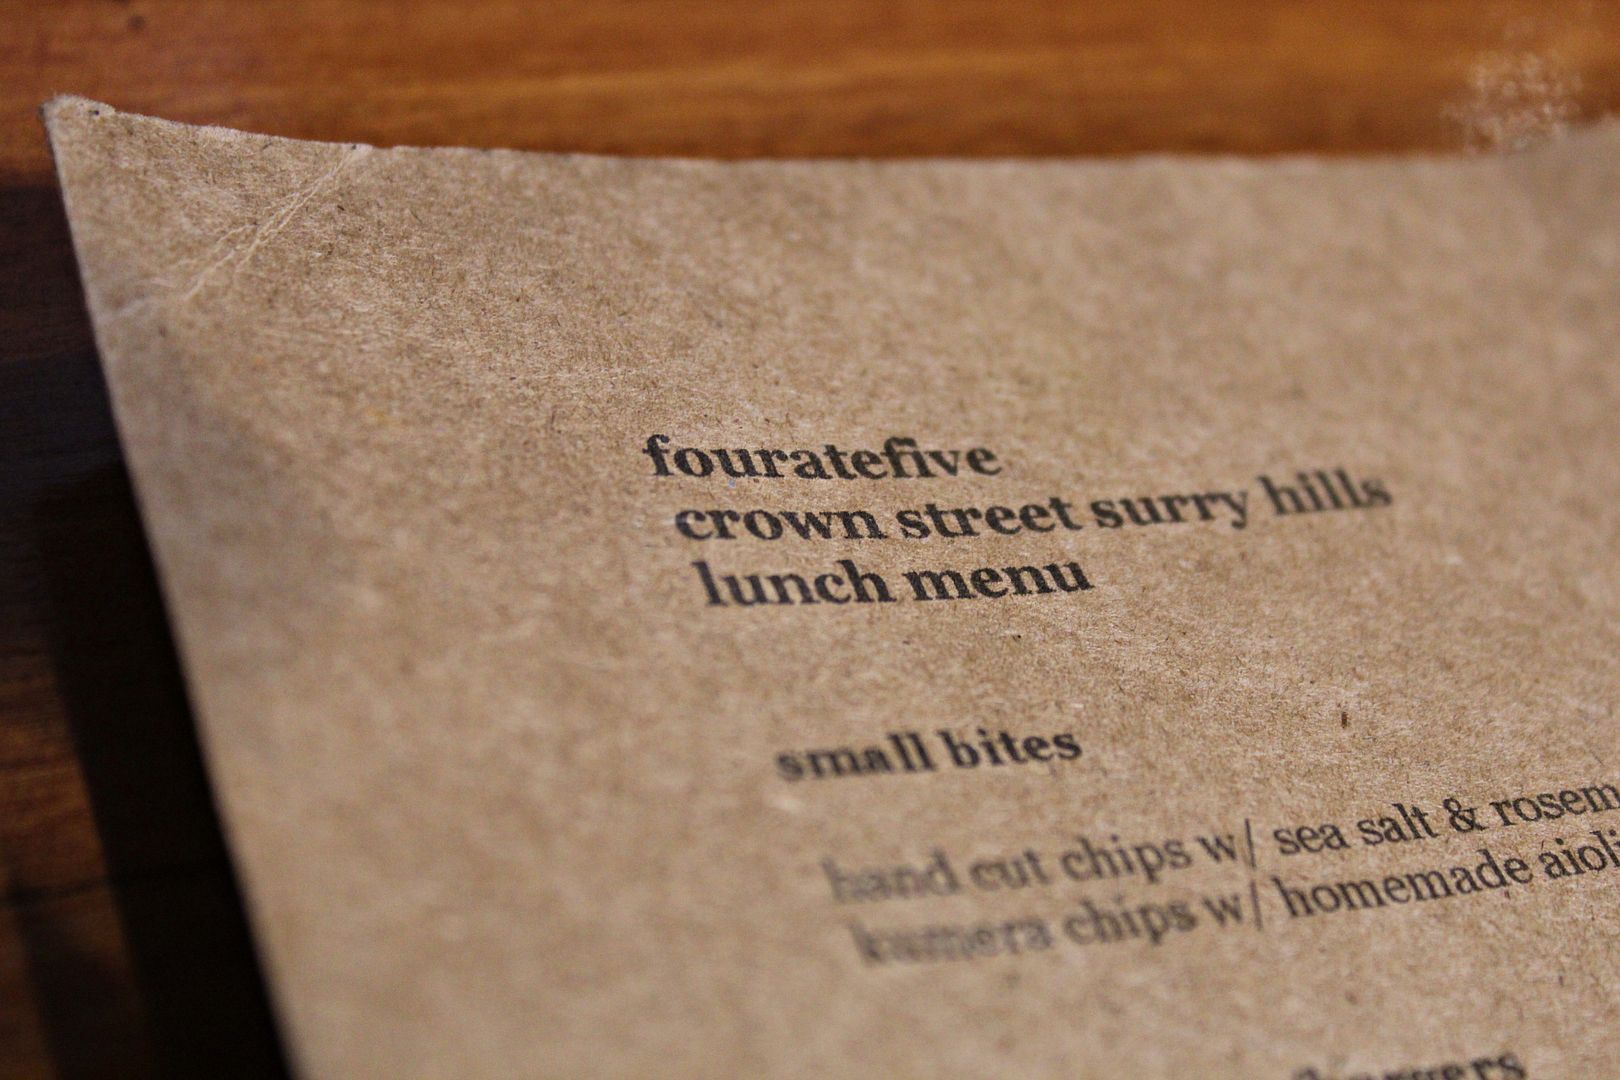 fouratefive
crown street surry hills
lunch menu
small bites
hand cut chips w/ sea salt & rosem
kumera chips w/ homemade aioli